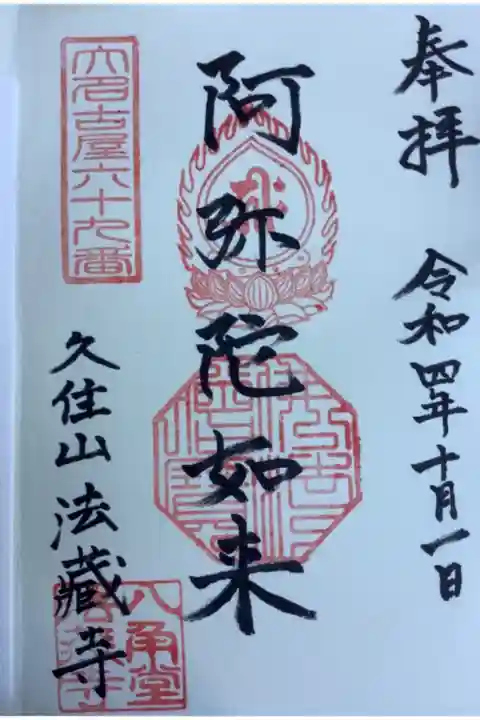 奉拝
令和四年十月一日
阿弥陀如来
大名古屋六十九番
久住山法藏寺
八角堂